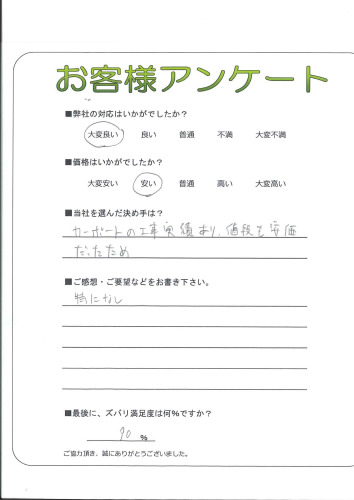 お客様アンケート
■弊社の対応はいかがでしたか？
大変良い 良い 普通 不満 大変不満
■価格はいかがでしたか？
大変安い 安い 普通 高い 大変高い
■当社を選んだ決め手は？
カーポートの工事実績あり、値段も安価
だったため
■ご感想・ご要望などをお書き下さい。
特になし
■最後に、ズバリ満足度は何％ですか？
90 ％
ご協力頂き、誠にありがとうございました。